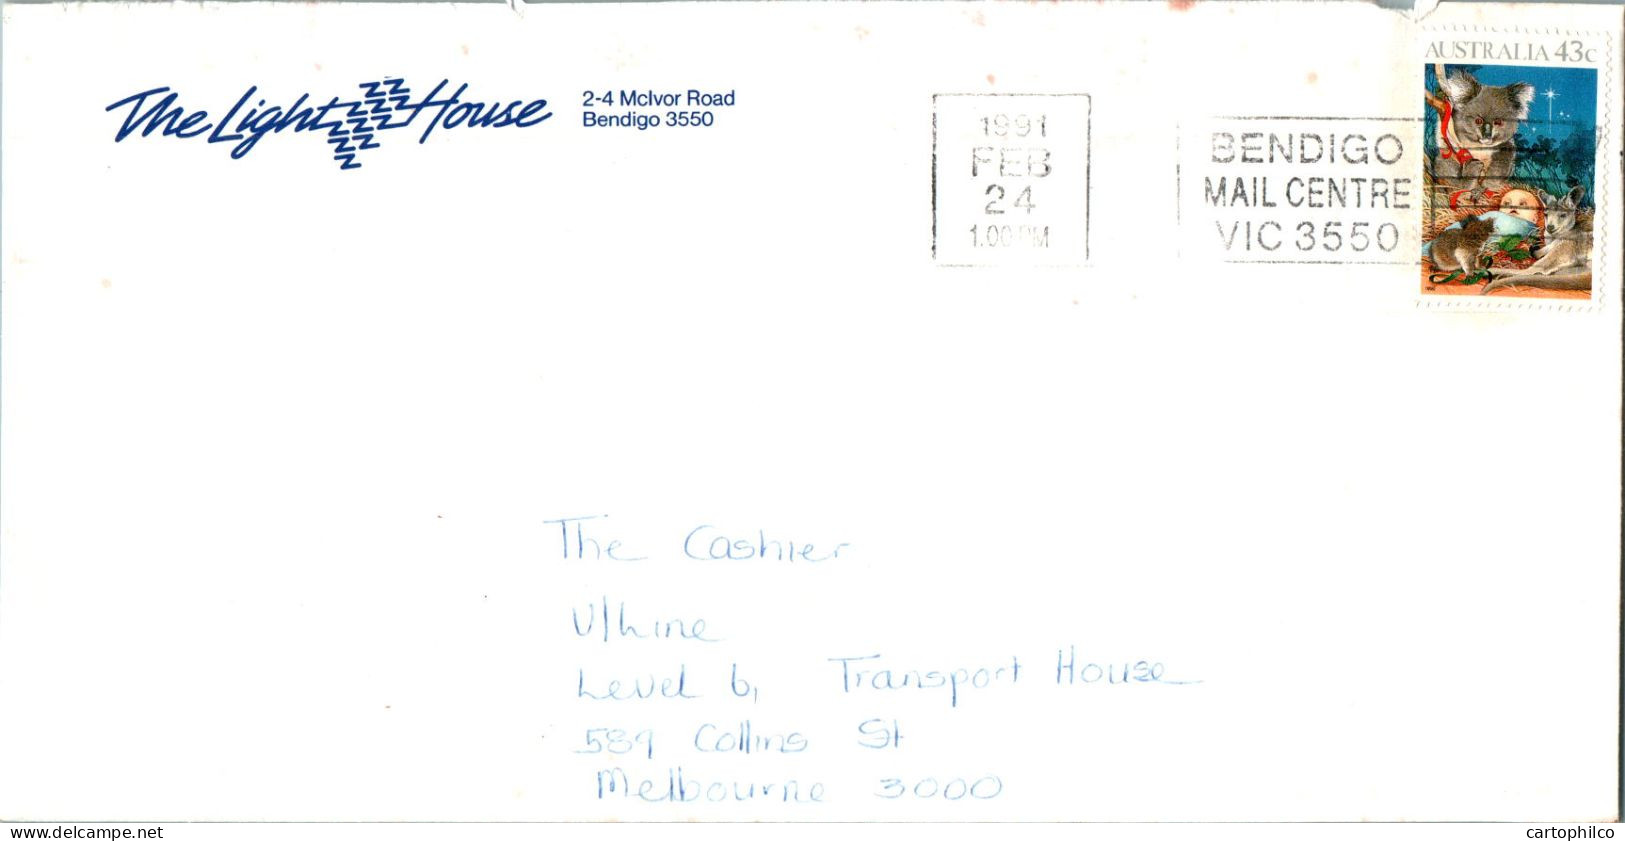 The Light House
2-4 McIvor Road
Bendigo 3550
1991
FEB
24
1.00 PM
BENDIGO
MAIL CENTRE
VIC 3550
AUSTRALIA 43c
The Cashier
V/Line
Level 6, Transport House
589 Collins St
Melbourne 3000
www.delcampe.net
cartophilco